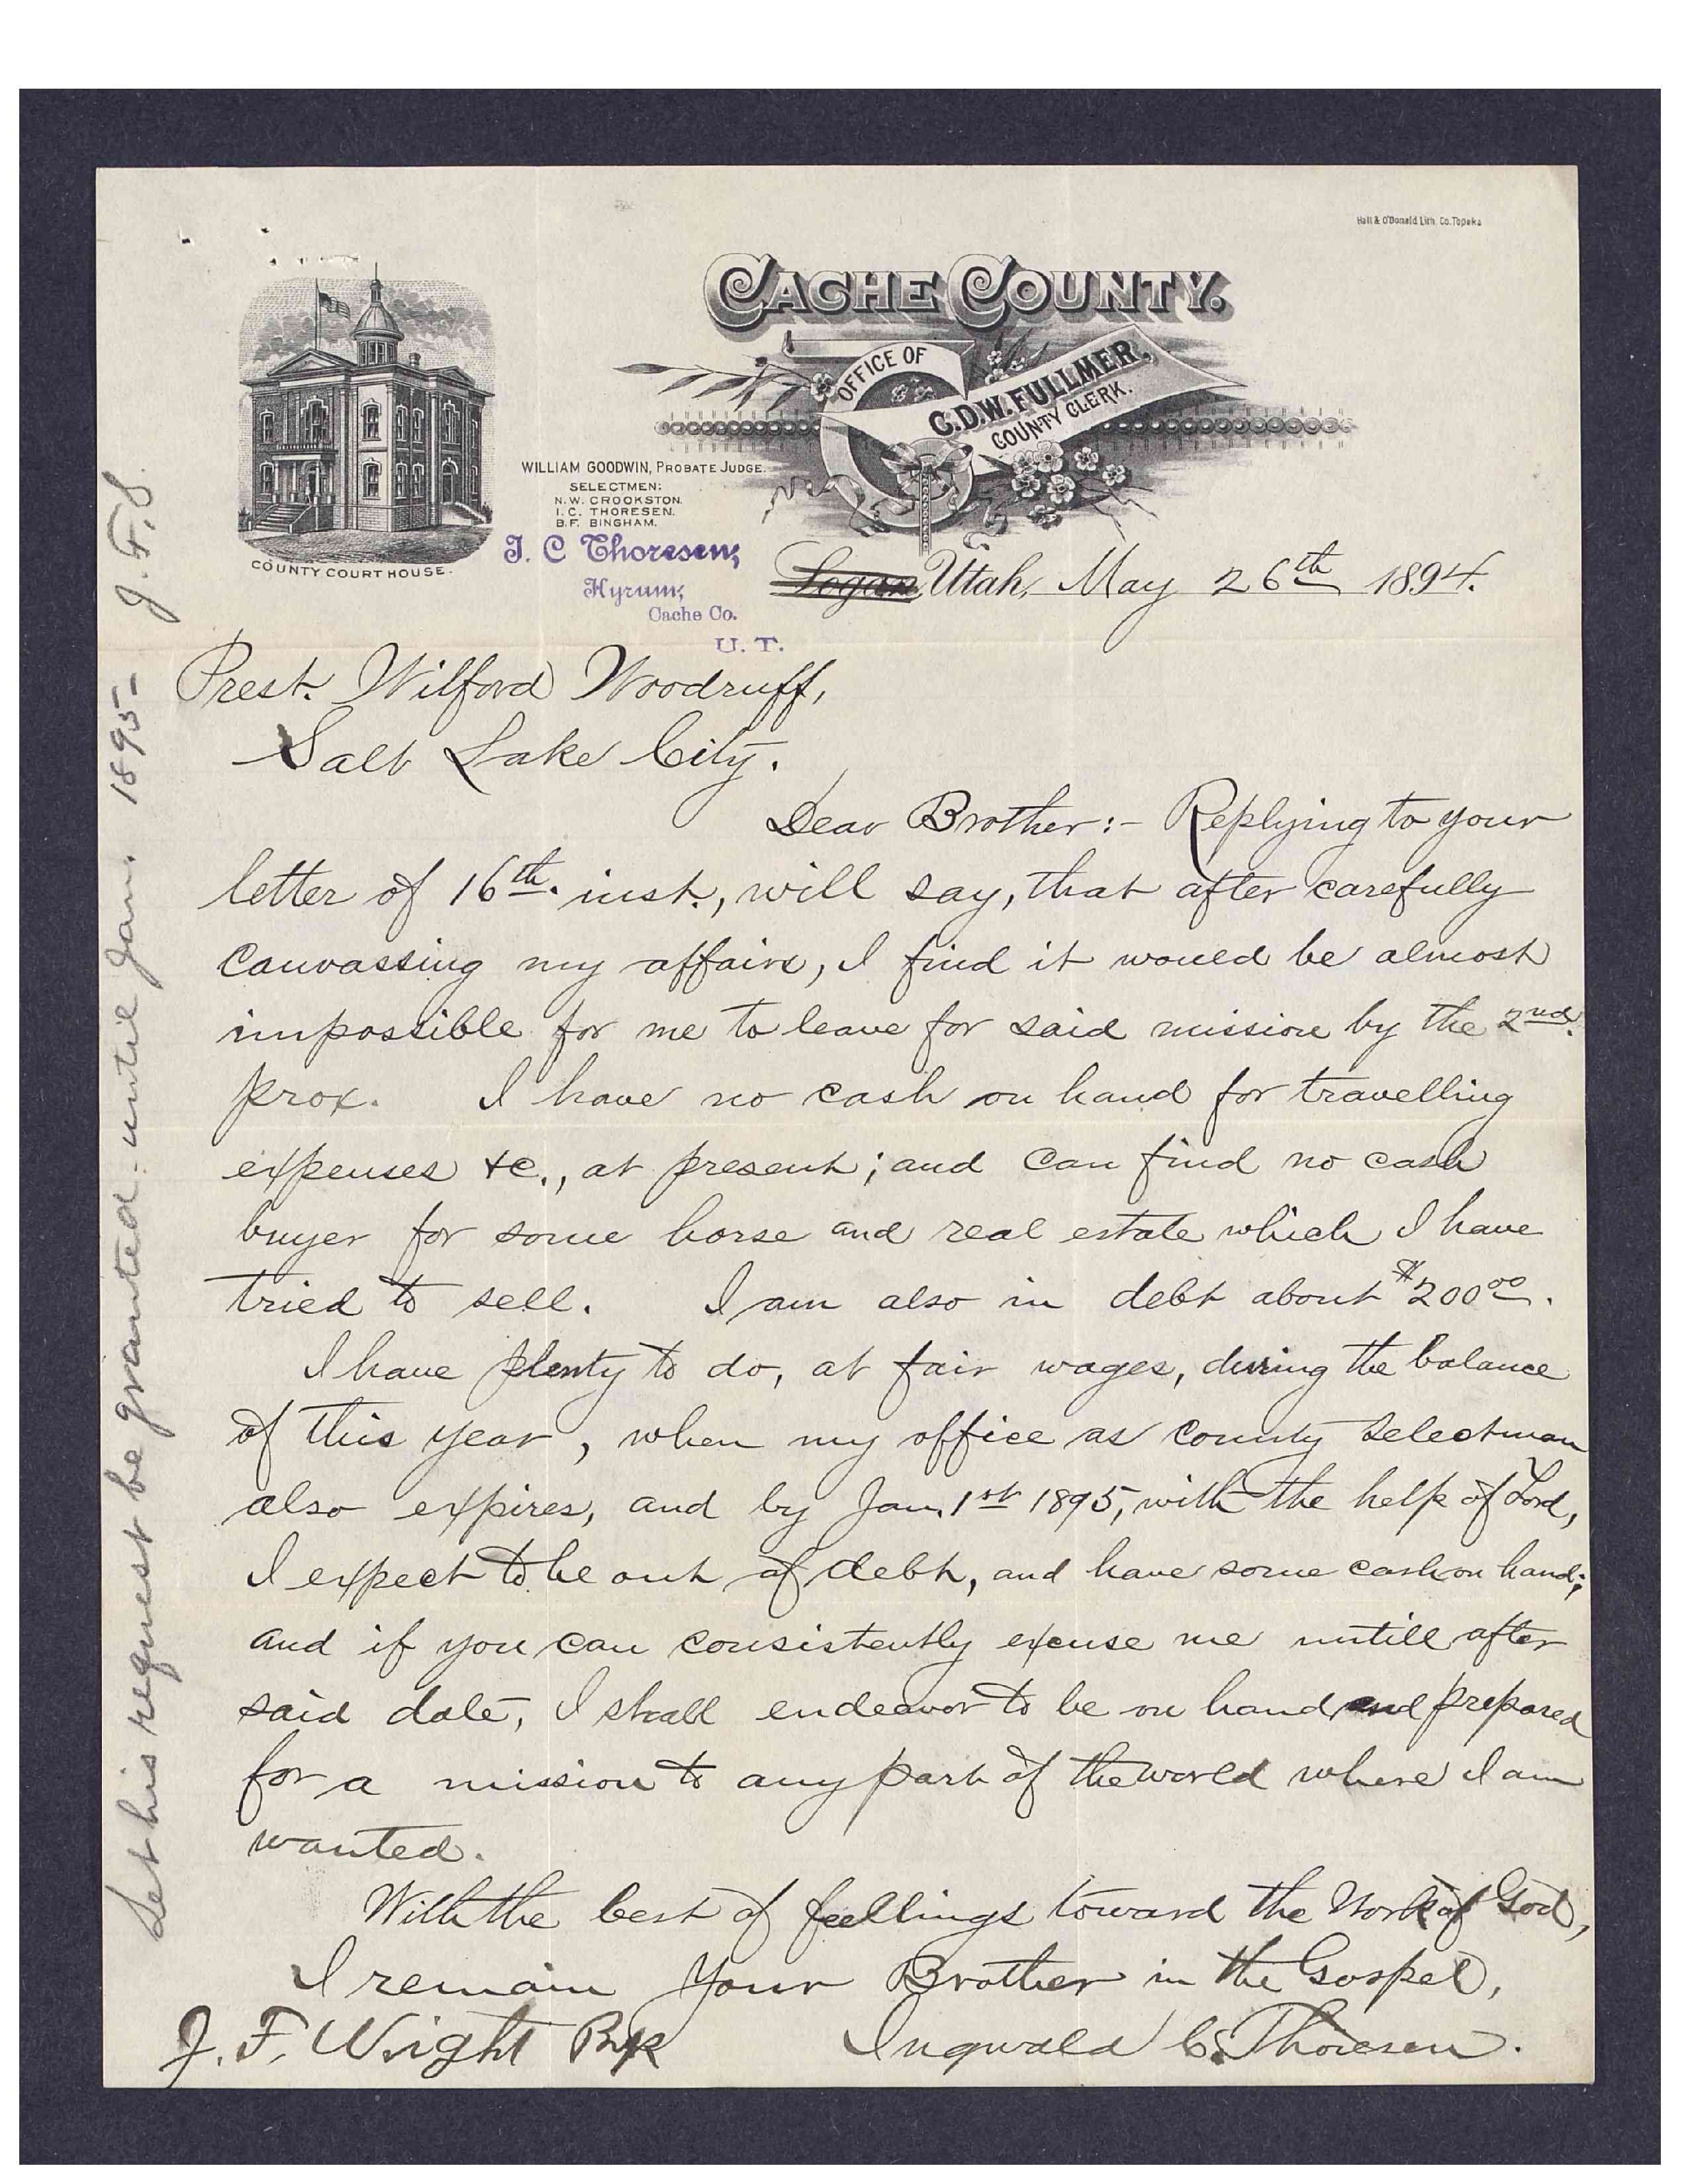 Hall & O'Donald Lith. Co. Topeka
CACHE COUNTY.
OFFICE OF
C.D.W. FULLMER,
COUNTY CLERK.
WILLIAM GOODWIN, PROBATE JUDGE.
SELECTMEN:
N.W. CROOKSTON.
I.C. THORESEN.
B.F. BINGHAM.
COUNTY COURT HOUSE.
I. C Thoresen,
Hyrum,
Cache Co.
U. T.
Logan, Utah, May 26th 1894.
Prest. Wilford Woodruff,
Salt Lake City.
Dear Brother:- Replying to your
letter of 16th. inst., will say, that after carefully
canvassing my affairs, I find it would be almost
impossible for me to leave for said mission by the 2nd.
prox. I have no cash on hand for travelling
expenses &c., at present; and can find no cash
buyer for some horse and real estate which I have
tried to sell. I am also in debt about $200 00.
I have plenty to do, at fair wages, during the balance
of this year, when my office as county selectman
also expires, and by Jan. 1st 1895, with the help of Lord,
I expect to be out of debt, and have some cash on hand;
and if you can consistently excuse me untill after
said date, I shall endeavor to be on hand and prepared
for a mission to any part of the world where I am
wanted.
With the best of feellings toward the Work of God,
I remain Your Brother in the Gospel,
Ingwald C. Thoresen.
J. F. Wright Bp
Let his request be granted - until Jan. 1895- J. F. S.